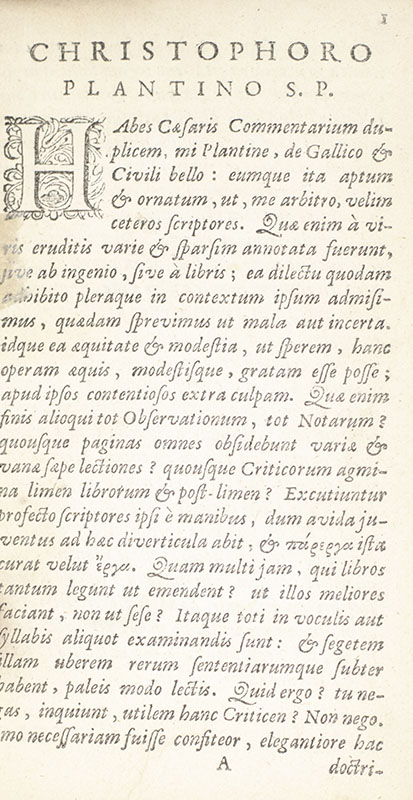 1
CHRISTOPHORO
PLANTINO S. P.
HAbes Cæsaris Commentarium du-
plicem, mi Plantine, de Gallico &
Civili bello : eumque ita aptum
& ornatum, ut, me arbitro, velim
ceteros ſcriptores. Quæ enim à vi-
ris eruditis varie & ſparſim annotata fuerunt,
ſive ab ingenio, ſive à libris ; ea dilectu quodam
adhibito pleraque in contextum ipſum admiſi-
mus, quædam ſprevimus ut mala aut incerta.
idque ea æquitate & modeſtia, ut ſperem, hanc
operam æquis, modeſtiſque, gratam eſſe poſſe ;
apud ipſos contentioſos extra culpam. Quæ enim
finis alioqui tot Obſervationum, tot Notarum ?
quouſque paginas omnes obſidebunt variæ &
vanæ ſæpe lectiones ? quouſque Criticorum agmi-
na limen librorum & poſt-limen ? Excutiuntur
profecto ſcriptores ipſi è manibus, dum avida ju-
ventus ad hæc diverticula abit, & πάρεργα iſta
curat velut ἔργα. Quam multi jam, qui libros
tantum legunt ut emendent ? ut illos meliores
faciant, non ut ſeſe ? Itaque toti in voculis aut
ſyllabis aliquot examinandis ſunt : & ſegetem
illam uberem rerum ſententiarumque ſubter
habent, paleis modo lectis. Quid ergo ? tu ne-
gas, inquiunt, utilem hanc Criticen ? Non nego.
imo neceſſariam fuiſſe confiteor, elegantiore hac
A doctri-